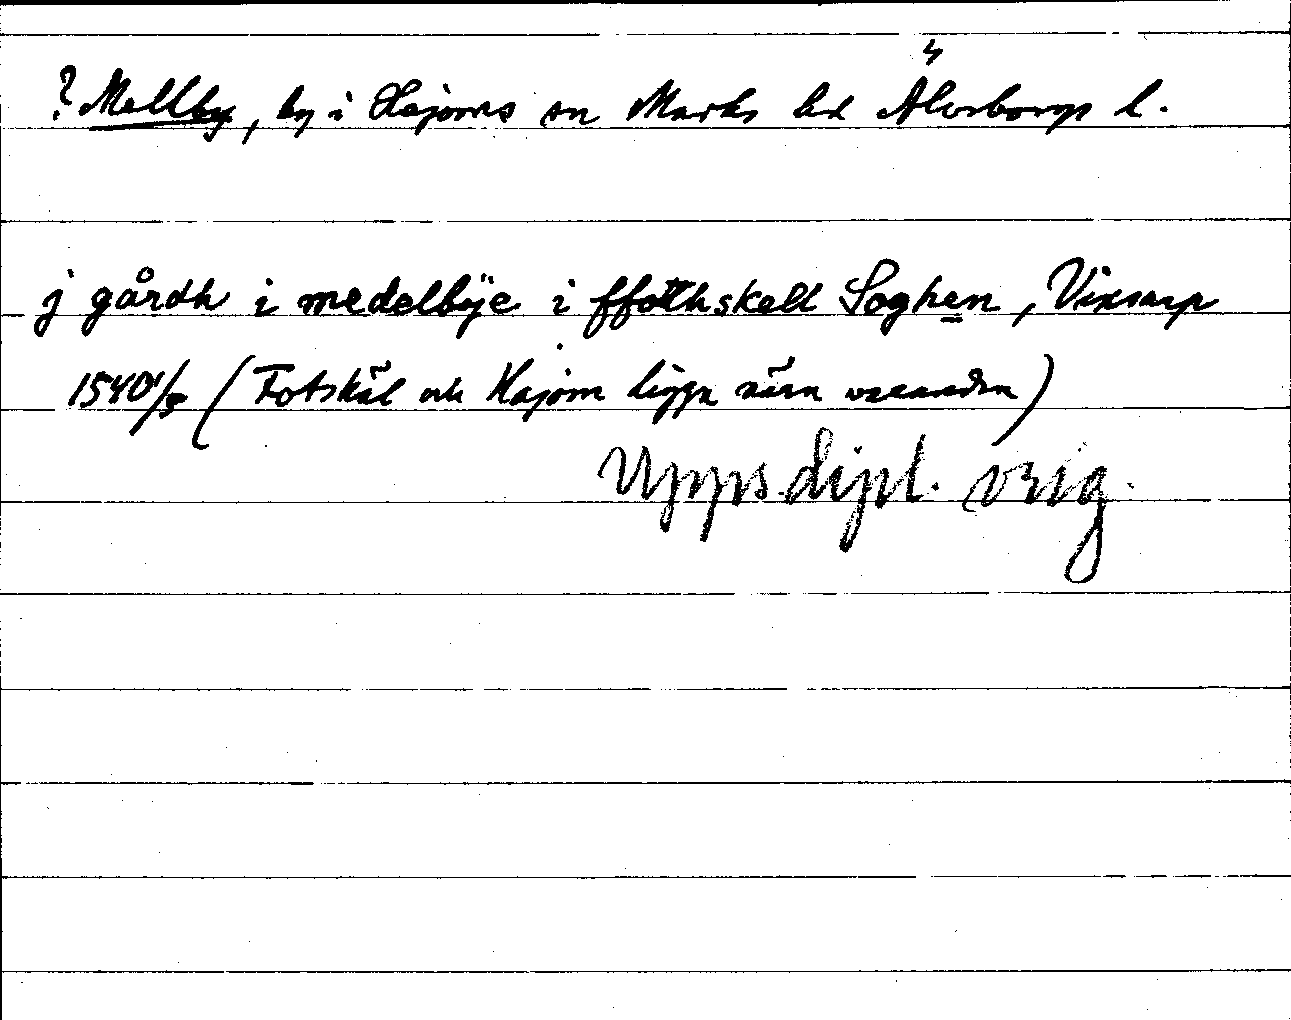 ? Mellby, by i Hajoms sn Marks hd Älvsborgs l.
j gårdh i medelbÿe i ffothskell Soghen, Vixsarp
1540 1/5 (Fotskäl och Hajom ligga nära varandra)
Upps. dipl. orig.